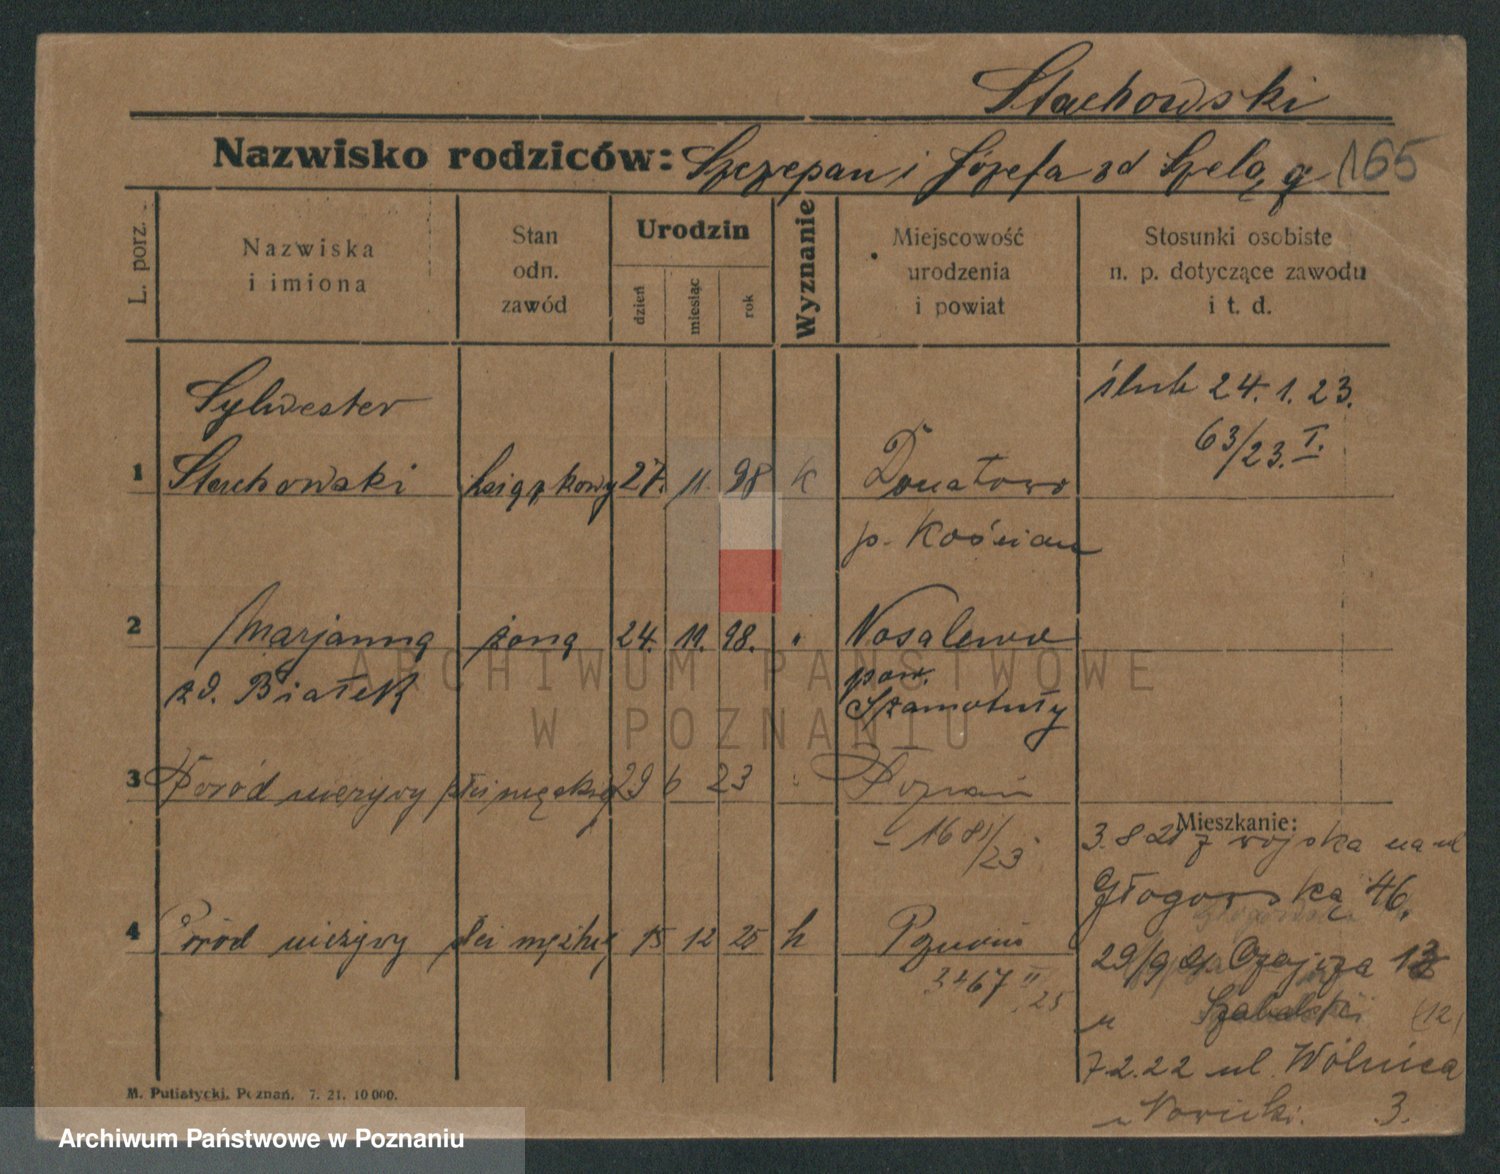 Stachowski
Nazwisko rodziców: Szczepan i Józefa zd Szeląg 165
L. porz.
Nazwiska
i imiona
Stan
odn.
zawód
Urodzin
dzień
miesiąc
rok
Wyznanie
Miejscowość
urodzenia
i powiat
Stosunki osobiste
n. p. dotyczące zawodu
i t. d.
Sylwester
ślub 24. 1. 23.
63/23. I.
1 Stachowski książkowy 27. 11. 98 k Donatowo
p. Kościan
2 Marjanna żona 24. 11. 98. " Nosalewo
zd. Białek
pow.
Szamotuły
3 Poród nieżywy płci męskiej 29 6 23 " Poznań
- 1681/23
Mieszkanie:
3. 8 21 z wojska na ul
Głogowska 46.
4 Poród nieżywy płci męskiej 15 12 25 k Poznań
3467 II 25
29/9 Czajcza
u Szabelski (12)
7. 2. 22 ul. Wólnica
u Nowicki. 3.
M. Putiatycki, Poznań. 7. 21. 10 000.
ARCHIWUM PAŃSTWOWE
W POZNANIU
Archiwum Państwowe w Poznaniu